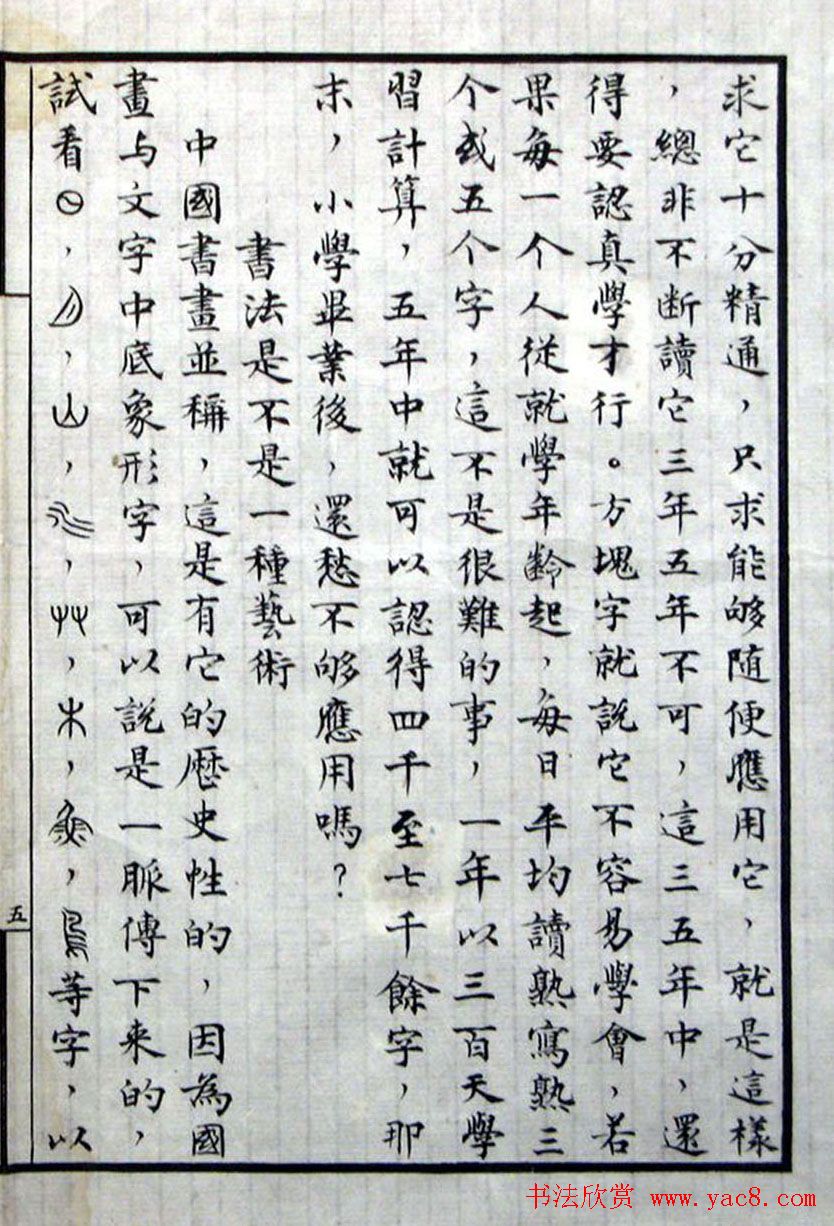 求它十分精通，只求能够随便應用它，就是這樣
，總非不断讀它三年五年不可，這三五年中，還
得要認真學才行。方塊字就說它不容易學會，若
果每一个人從就學年齡起，每日平均讀熟寫熟三
个或五个字，這不是很難的事，一年以三百天學
習計算，五年中就可以認得四千至七千餘字，那
末，小學畢業後，還愁不够應用嗎？
書法是不是一種藝術
中國書畫並稱，這是有它的歷史性的，因為國
畫与文字中底象形字，可以說是一脈傳下来的，
試看日，月，山，水，艸，木，魚，鳥等字，以
五
书法欣赏 www.yac8.com